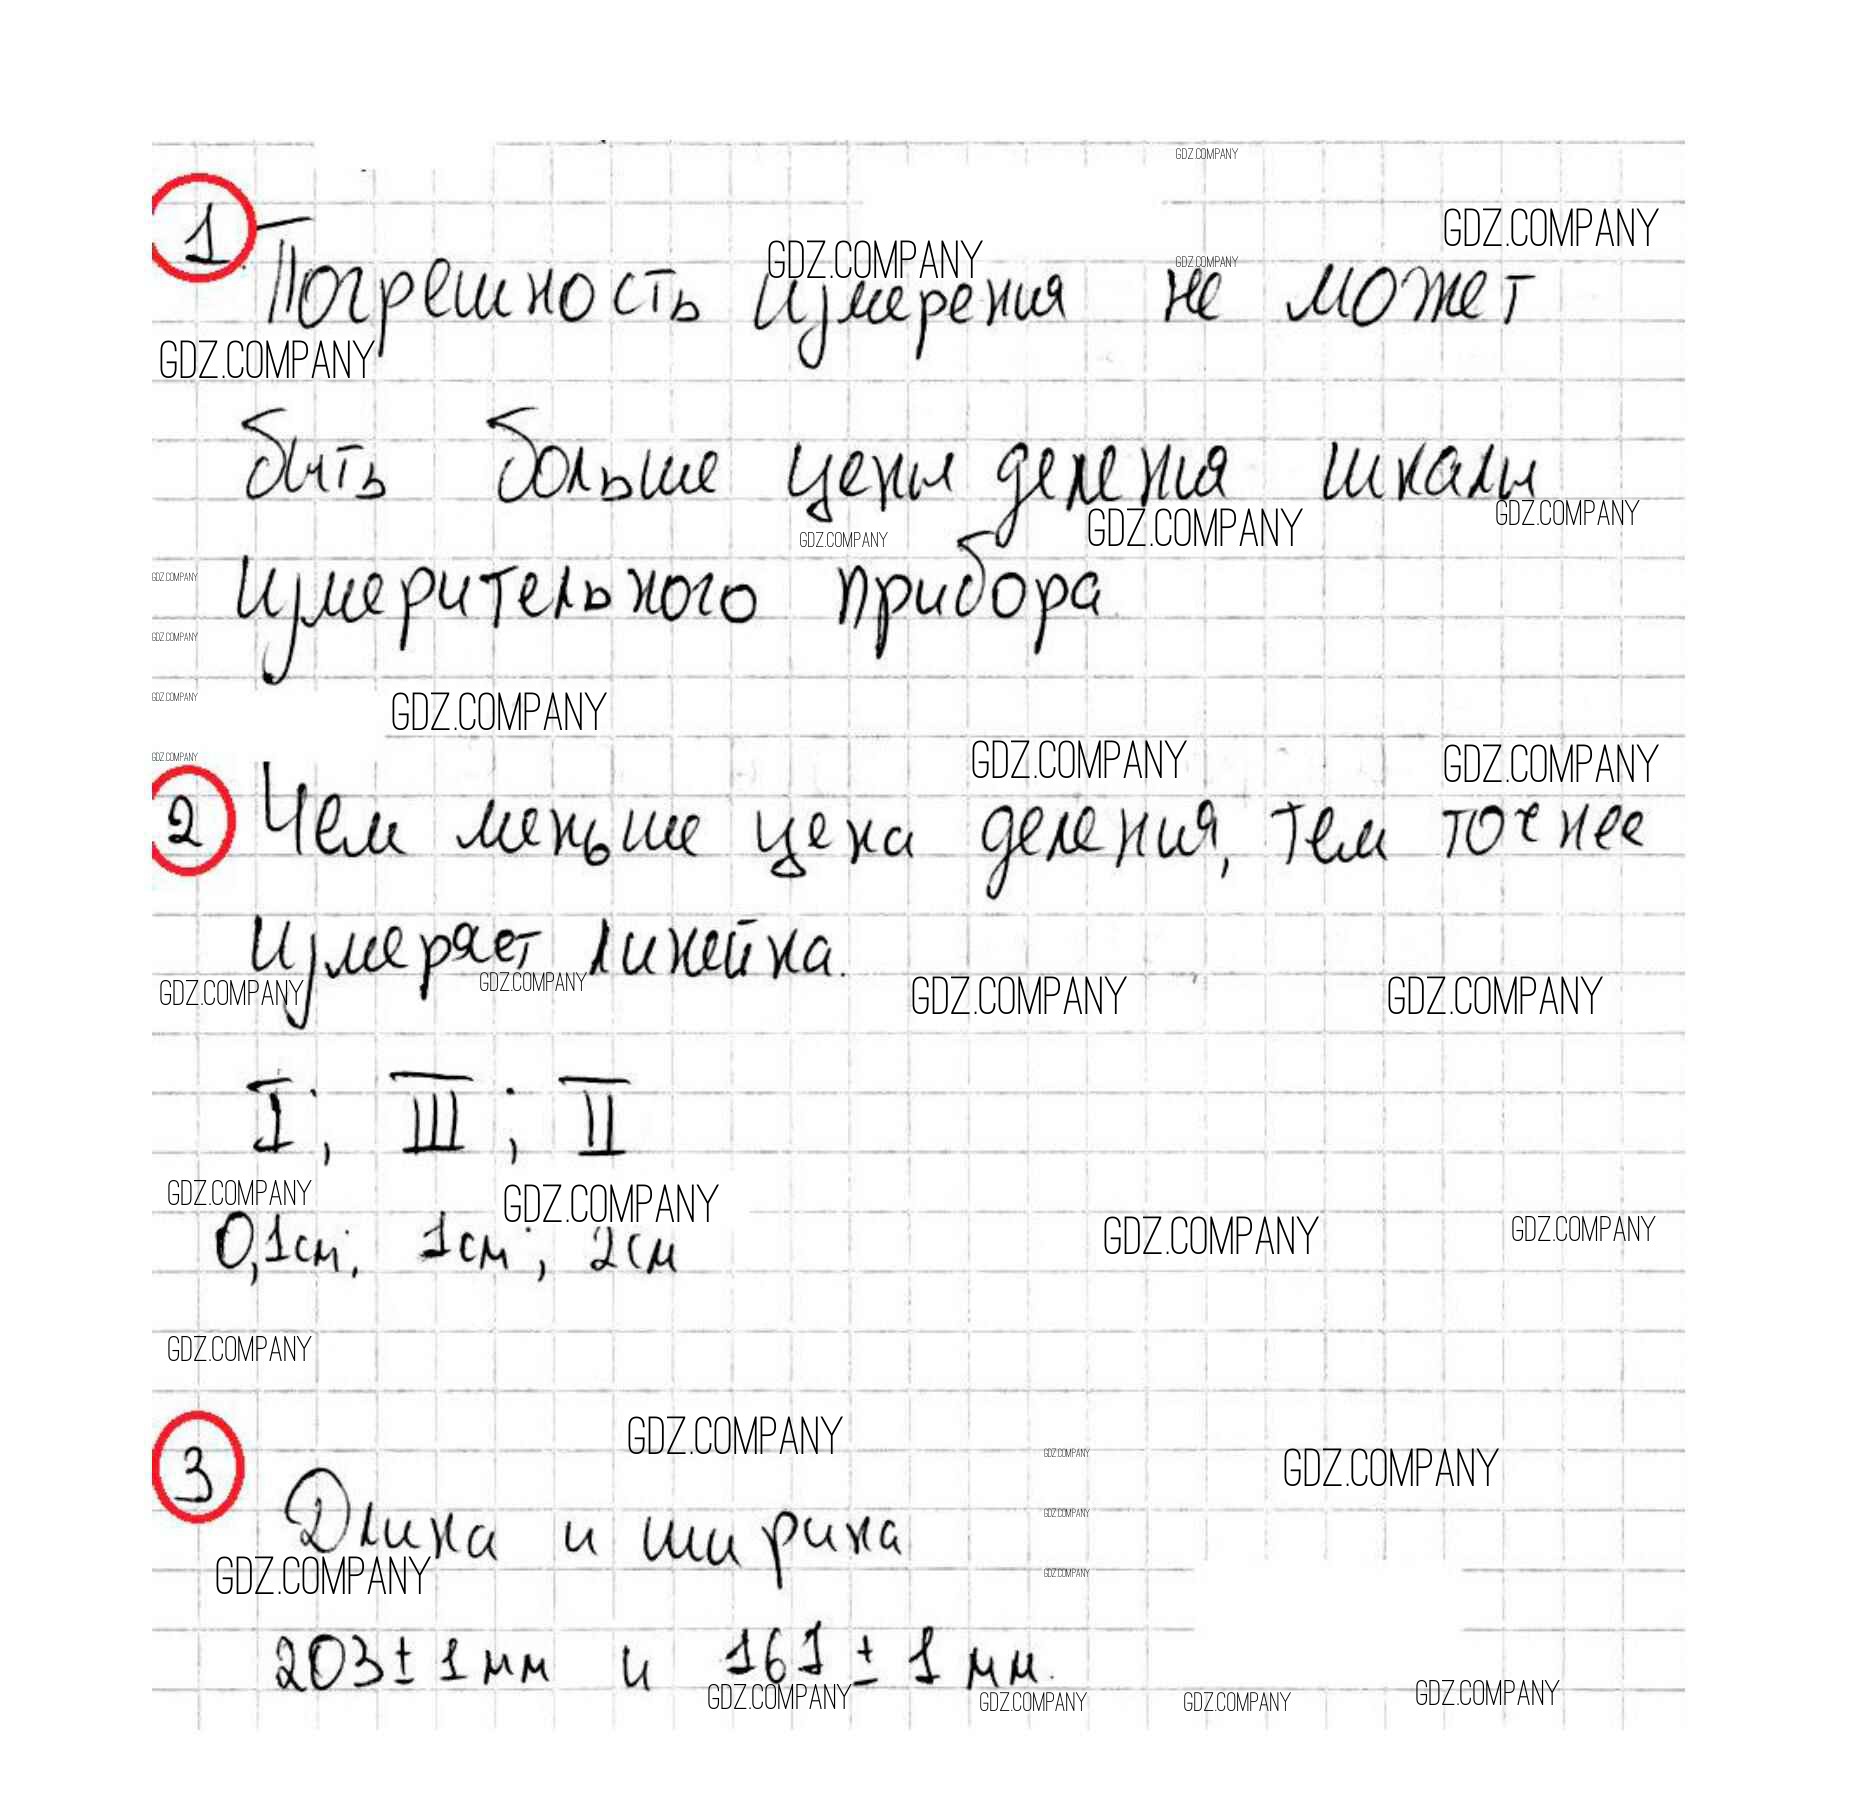 GDZ.COMPANY
GDZ.COMPANY
1. Погрешность измерения не может
GDZ.COMPANY
GDZ.COMPANY
GDZ.COMPANY
быть больше цены деления шкалы
GDZ.COMPANY
GDZ.COMPANY
GDZ.COMPANY
GDZ.COMPANY
измерительного прибора
GDZ.COMPANY
GDZ.COMPANY
GDZ.COMPANY
GDZ.COMPANY
GDZ.COMPANY
GDZ.COMPANY
2 Чем меньше цена деления, тем точнее
измеряет линейка.
GDZ.COMPANY
GDZ.COMPANY
GDZ.COMPANY
GDZ.COMPANY
I; III; II
GDZ.COMPANY
GDZ.COMPANY
GDZ.COMPANY
GDZ.COMPANY
0,1см; 1см; 2см
GDZ.COMPANY
GDZ.COMPANY
GDZ.COMPANY
GDZ.COMPANY
3 Длина и ширина
GDZ.COMPANY
GDZ.COMPANY
GDZ.COMPANY
203 ± 1 мм и 161 ± 1 мм.
GDZ.COMPANY
GDZ.COMPANY
GDZ.COMPANY
GDZ.COMPANY